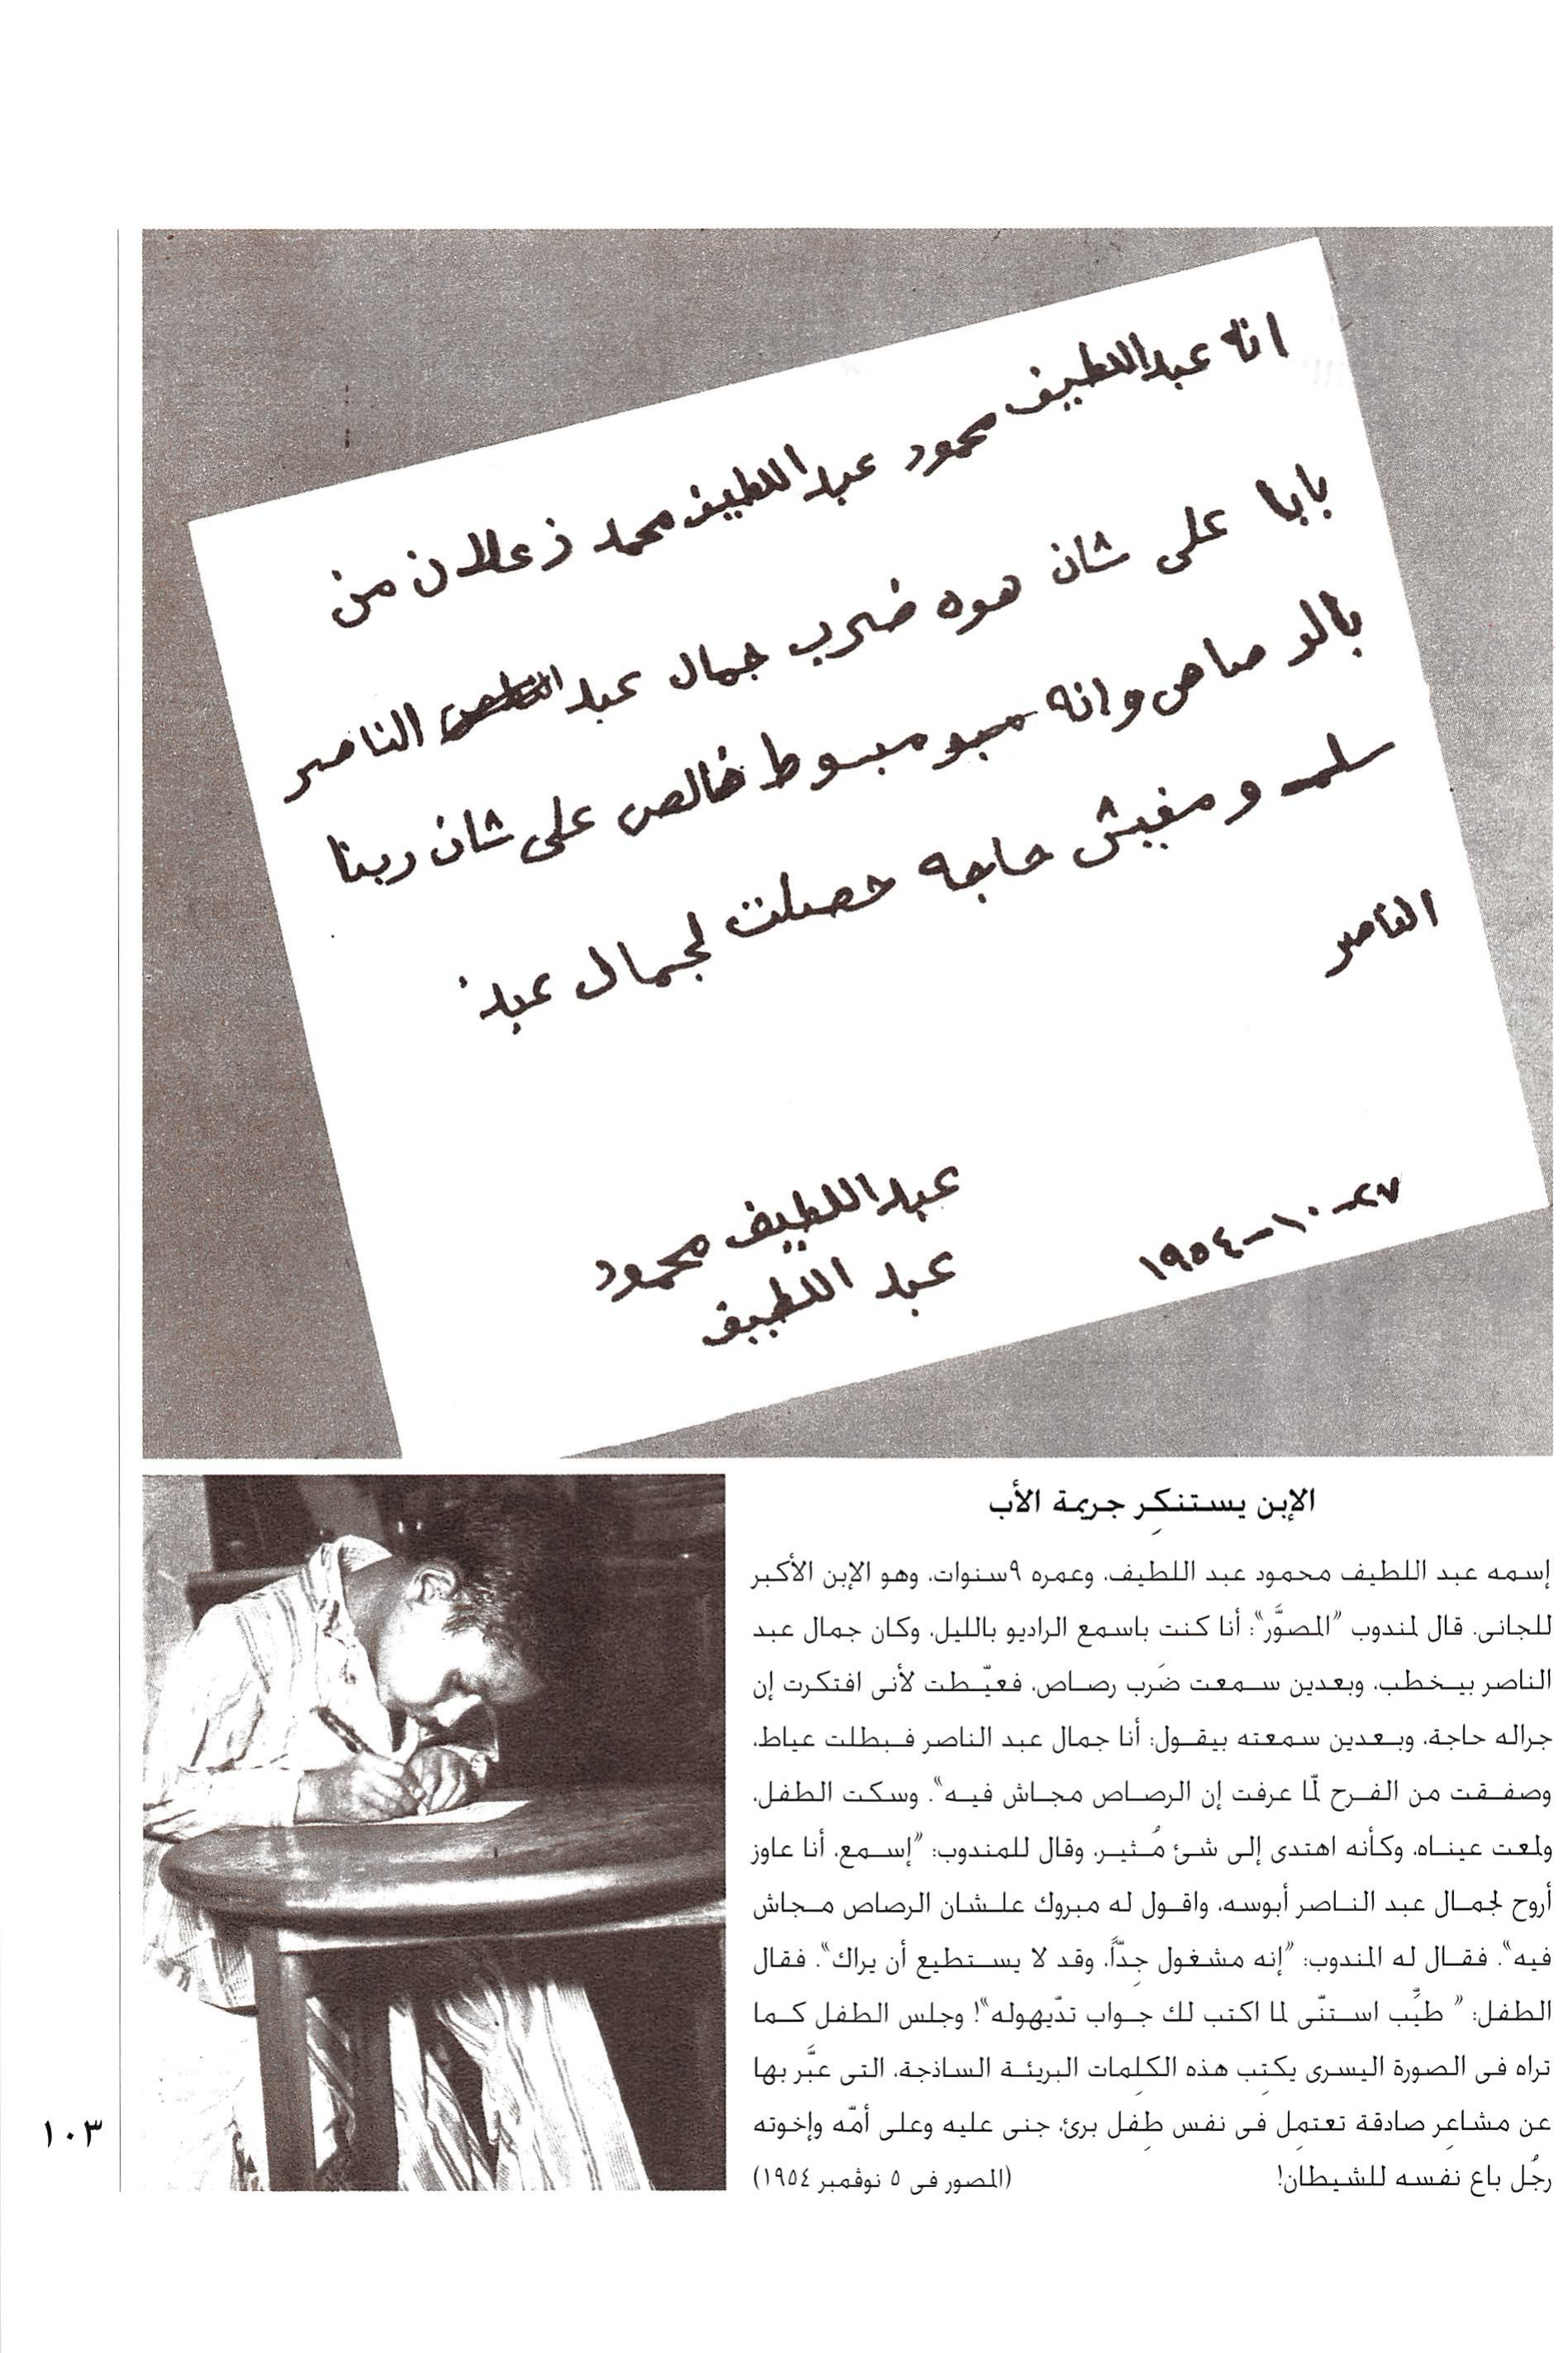 انه عبد اللطيف محمود عبد اللطيف محمد زعلان من
بابا على شان هوه ضرب جمال عبد الناصر
بالر صاص وانه مبو مبسوط خالص على شان ربنا
سلمه ومفيش حاجه حصلت لجمال عبد
الناصر
عبد اللطيف محمود
عبد اللطيف
٢٧-١٠-١٩٥٤
الإبن يستنكِر جريمة الأب
إسمه عبد اللطيف محمود عبد اللطيف، وعمره ٩سنوات، وهو الإبن الأكبر
للجانى. قال لمندوب "المصوَّر": أنا كنت باسمع الراديو بالليل، وكان جمال عبد
الناصر بيخطب، وبعدين سمعت ضَرب رصاص، فعيّطت لأنى افتكرت إن
جراله حاجة، وبعدين سمعته بيقول: أنا جمال عبد الناصر فبطلت عياط،
وصفقت من الفرح لمّا عرفت إن الرصاص مجاش فيه". وسكت الطفل،
ولمعت عيناه، وكأنه اهتدى إلى شئ مُثير، وقال للمندوب: "إسمع، أنا عاوز
أروح لجمال عبد الناصر أبوسه، واقول له مبروك علشان الرصاص مجاش
فيه". فقال له المندوب: "إنه مشغول جِدّاً، وقد لا يستطيع أن يراك". فقال
الطفل: " طيِّب استنّى لما اكتب لك جواب تدّيهوله"! وجلس الطفل كما
تراه فى الصورة اليسرى يكتِب هذه الكلِمات البريئة الساذجة، التى عبَّر بها
عن مشاعِر صادقة تعتمِل فى نفس طِفل برئ، جنى عليه وعلى أمّه وإخوته
رجُل باع نفسه للشيطان! (المصور فى ٥ نوڤمبر ١٩٥٤)
١٠٣